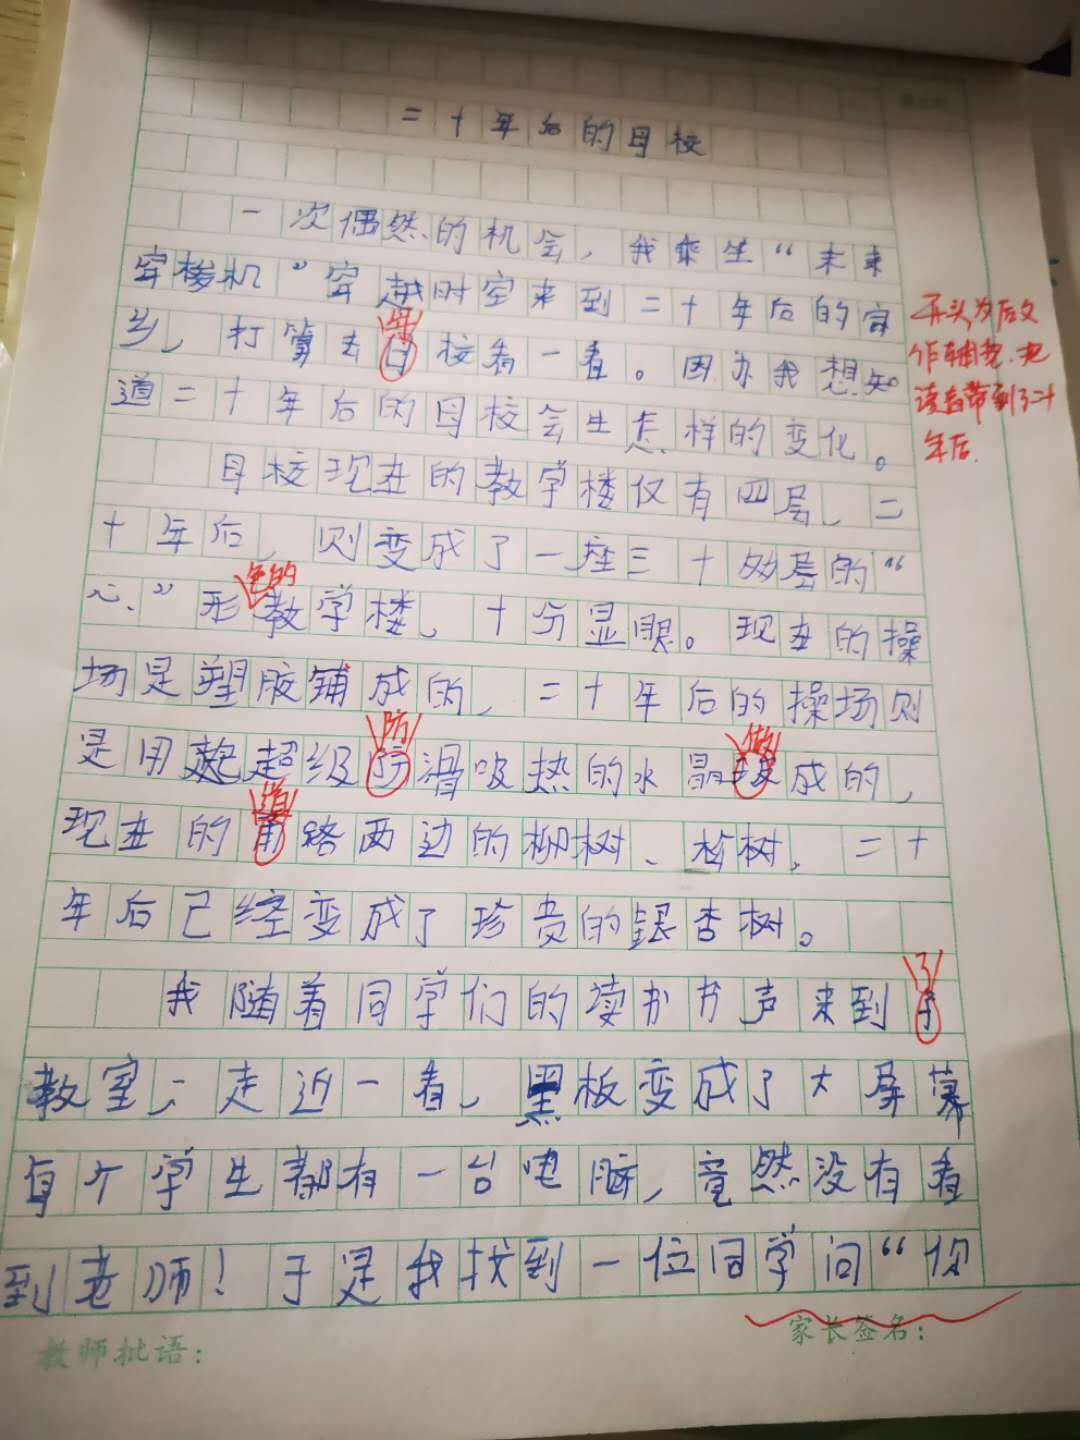 二十年后的母校
一次偶然的机会，我乘坐“未来
穿梭机”穿越时空来到二十年后的家
乡，打算去母校看一看。因为我想知
道二十年后的母校会生怎样的变化。
母校现在的教学楼仅有四层，二
十年后，则变成了一座三十多层的“
心”形教学楼，十分显眼。现在的操
色的
场是塑胶铺成的，二十年后的操场则
是用超级防滑吸热的水晶成的，
防
做
现在的路两边的柳树、松树，二十
道
年后已经变成了珍贵的银杏树。
我随着同学们的读书声来到
了
教室，走近一看，黑板变成了大屏幕
每个学生都有一台电脑，竟然没有看
到老师！于是我找到一位同学问“你
开头为后文
作铺垫，把
读者带到了二十
年后.
教师批语：
家长签名：